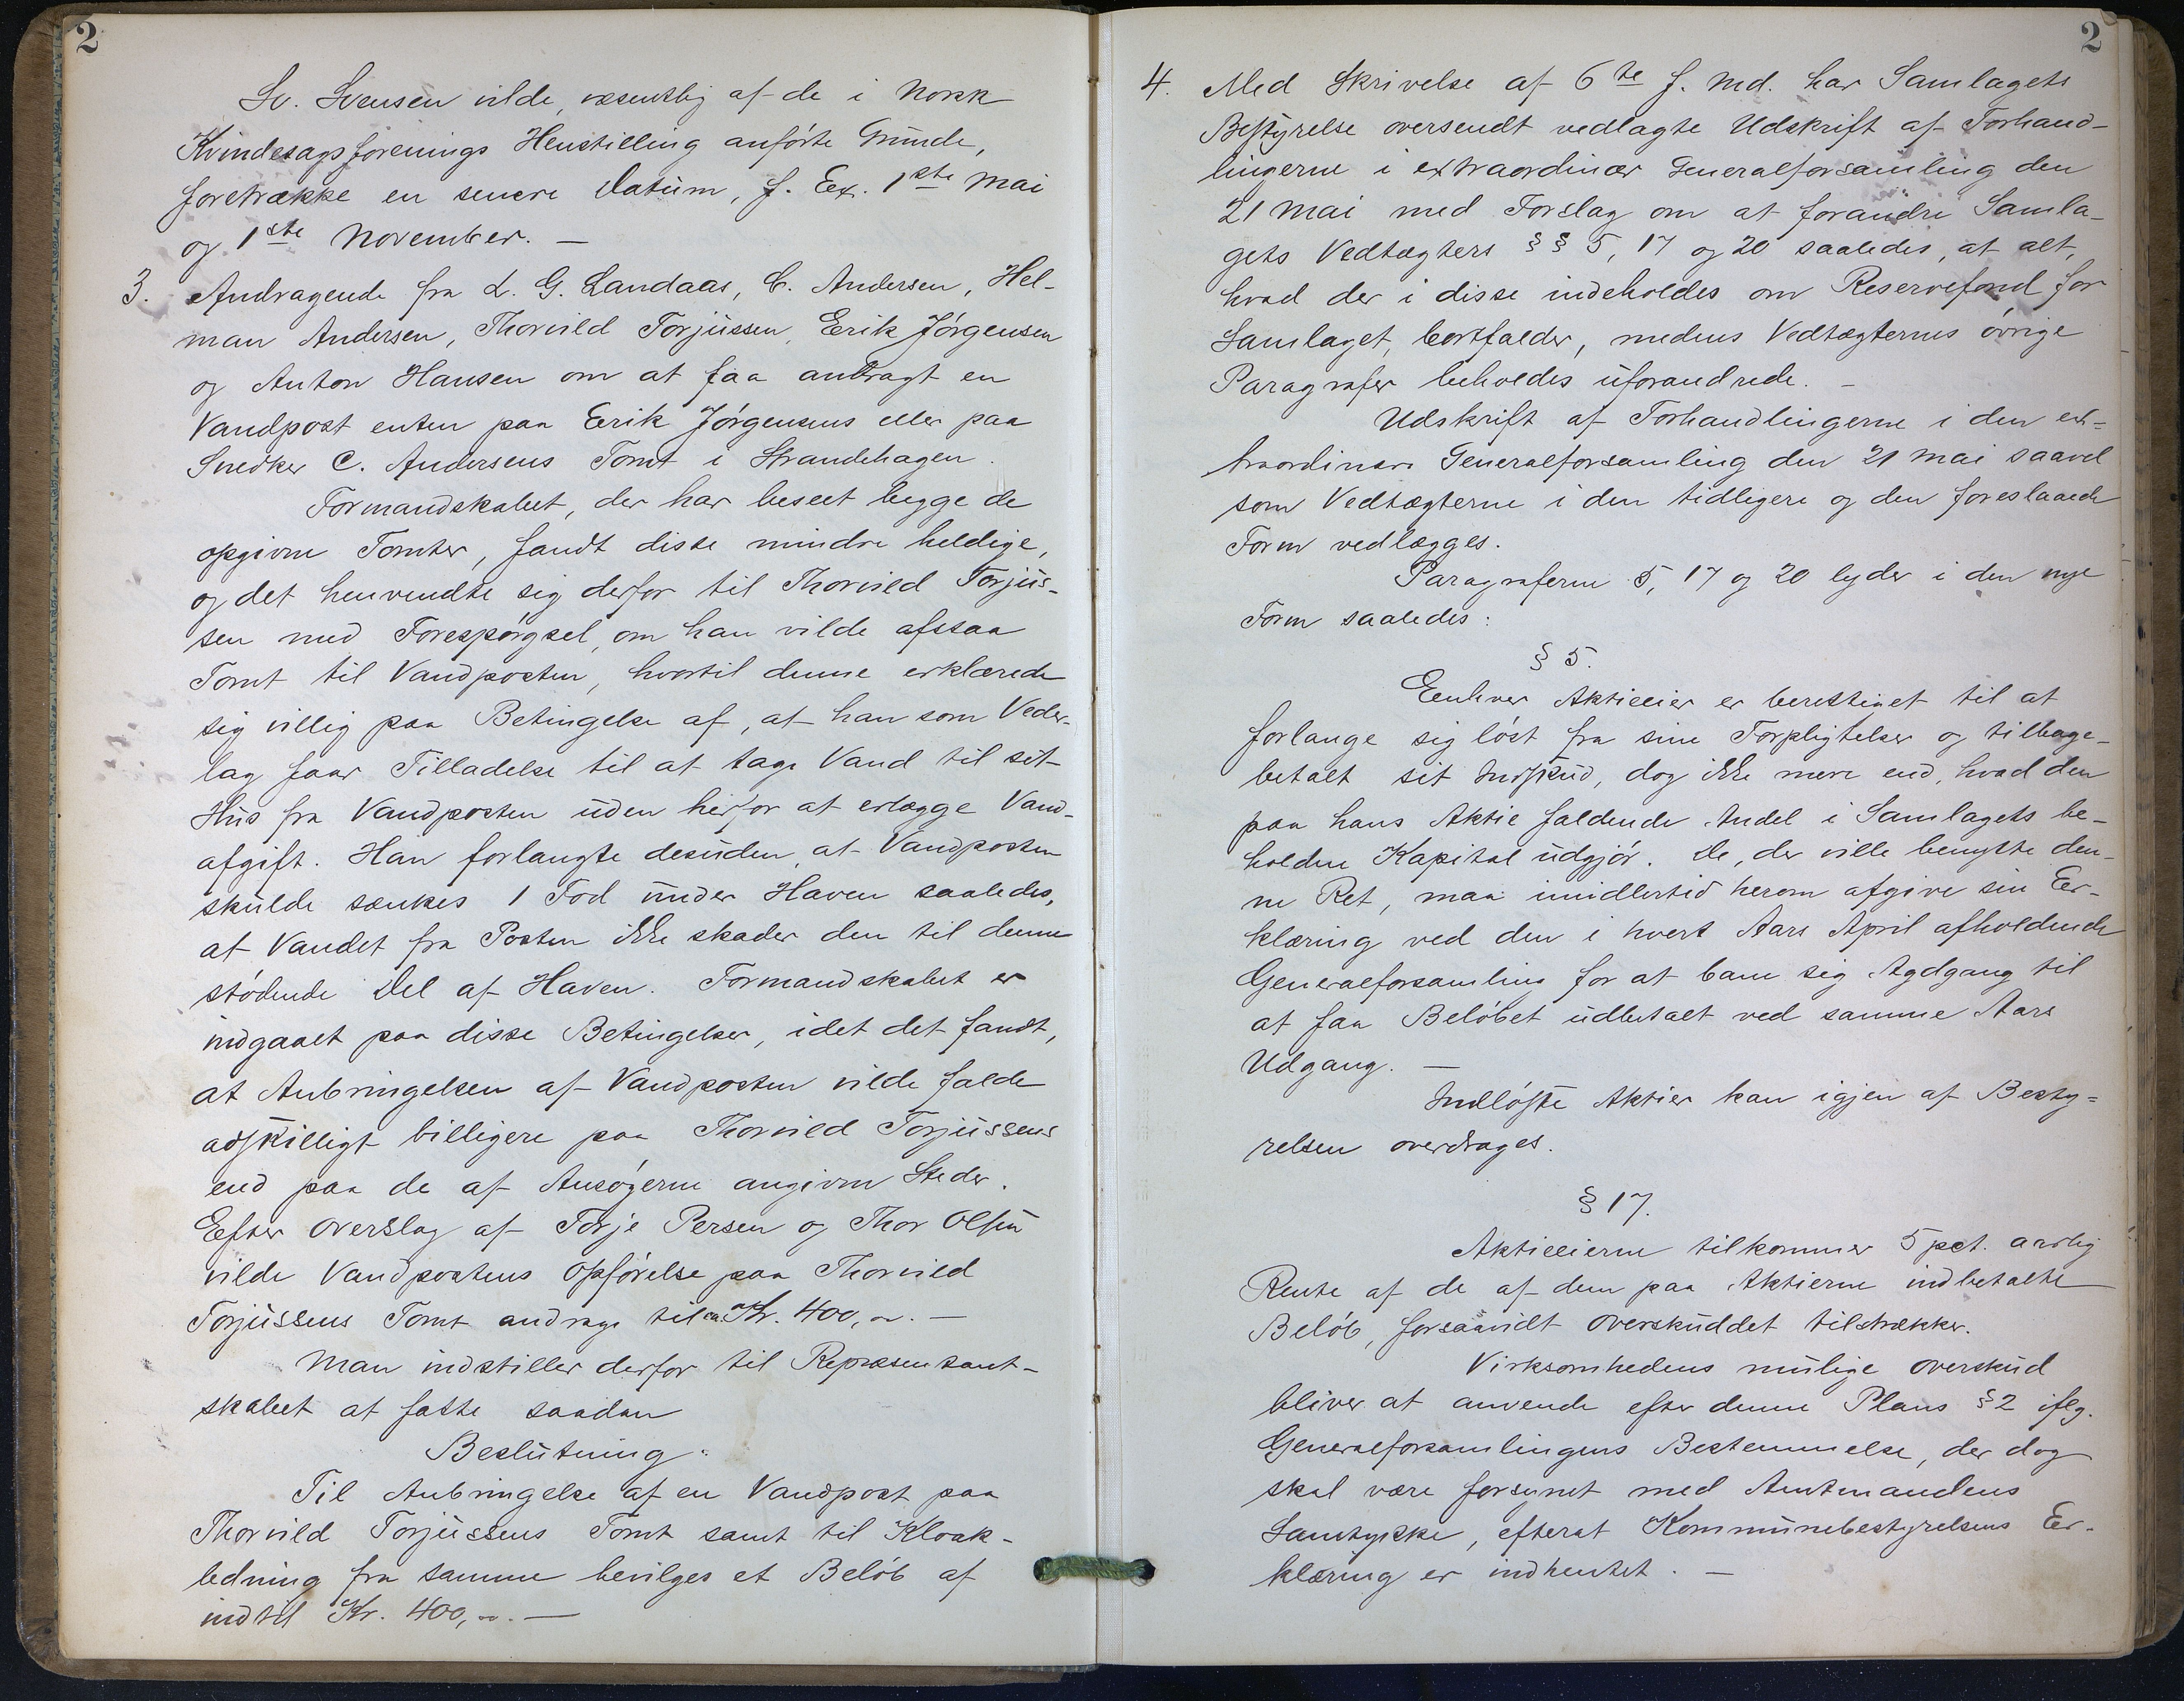 2
Sv. Svensen vilde, væsentlig af de i Norsk
Kvindesagsforenings Henstilling anførte Grunde,
foretrække en senere Datum, f. Ex. 1ste Mai
og 1ste November. —
3. Andragende fra L. G. Landaas, C. Andersen, Hel-
man Andersen, Thorvild Torjussen, Erik Jørgensen
og Anton Hansen om at faa anbragt en
Vandpost enten paa Erik Jørgensens eller paa
Snedker C. Andersens Tomt i Strandehagen.
Formandskabet, der har beseet begge de
opgivne Tomter, fandt disse mindre heldige,
og det henvendte sig derfor til Thorvild Torjus-
sen med Forespørgsel, om han vilde afstaa
Tomt til Vandposten, hvortil denne erklærede
sig villig paa Betingelse af, at han som Veder-
lag faar Tilladelse til at tage Vand til sit
Hus fra Vandposten uden herfor at erlægge Vand-
afgift. Han forlangte desuden, at Vandposten
skulde sænkes 1 Fod under Haven saaledes,
at Vandet fra Posten ikke skader den til denne
stødende Del af Haven. Formandskabet er
indgaaet paa disse Betingelser, idet det fandt,
at Anbringelsen af Vandposten vilde falde
adskilligt billigere paa Thorvild Torjussens
end paa de af Ansøgerne angivne Steder.
Efter Overslag af Torje Persen og Thor Olsen
vilde Vandpostens Opførelse paa Thorvild
Torjussens Tomt andrage til ca. Kr. 400,00. —
Man indstiller derfor til Repræsentant-
skabet at fatte saadan
Beslutning:
Til Anbringelse af en Vandpost paa
Thorvild Torjussens Tomt samt til Kloak-
ledning fra samme bevilges et Beløb af
indtil Kr. 400,00. —
2
4. Med Skrivelse af 6te f. Md. har Samlagets
Bestyrelse oversendt vedlagte Udskrift af Forhand-
lingerne i extraordinær Generalforsamling den
21 Mai med Forslag om at forandre Samla-
gets Vedtægters §§ 5, 17 og 20 saaledes, at alt,
hvad der i disse indeholdes om Reservefond for
Samlaget, bortfalder, medens Vedtægternes øvrige
Paragrafer beholdes uforandrede. —
Udskrift af Forhandlingerne i den ex-
traordinære Generalforsamling den 21 Mai saavel
som Vedtægterne i den tidligere og den foreslaaede
Form vedlægges.
Paragraferne 5, 17 og 20 lyder i den nye
Form saaledes:
§ 5.
Eenhver Aktieeier er berettiget til at
forlange sig løst fra sine Forpligtelser og tilbage-
betalt sit Indskud, dog ikke mere end, hvad den
paa hans Aktie faldende Andel i Samlagets be-
holdne Kapital udgjør. De, der ville benytte den-
ne Ret, maa imidlertid herom afgive sin Er-
klæring ved den i hvert Aars April afholdende
Generalforsamling for at bane sig Agdgang til
at faa Beløbet udbetalt ved samme Aars
Udgang. —
Indløste Aktier kan igjen af Besty-
relsen overdrages.
§ 17.
Aktieeierne tilkommer 5 pct. aarlig
Rente af de af dem paa Aktierne indbetalte
Beløb, forsaavidt Overskuddet tilstrækker.
Virksomhedens mulige Overskud
bliver at anvende efter denne Plans § 2 iflg.
Generalforsamlingens Bestemmelse, der dog
skal være forsynet med Amtmandens
Samtykke, efterat Kommunebestyrelsens Er-
klæring er indhentet. —